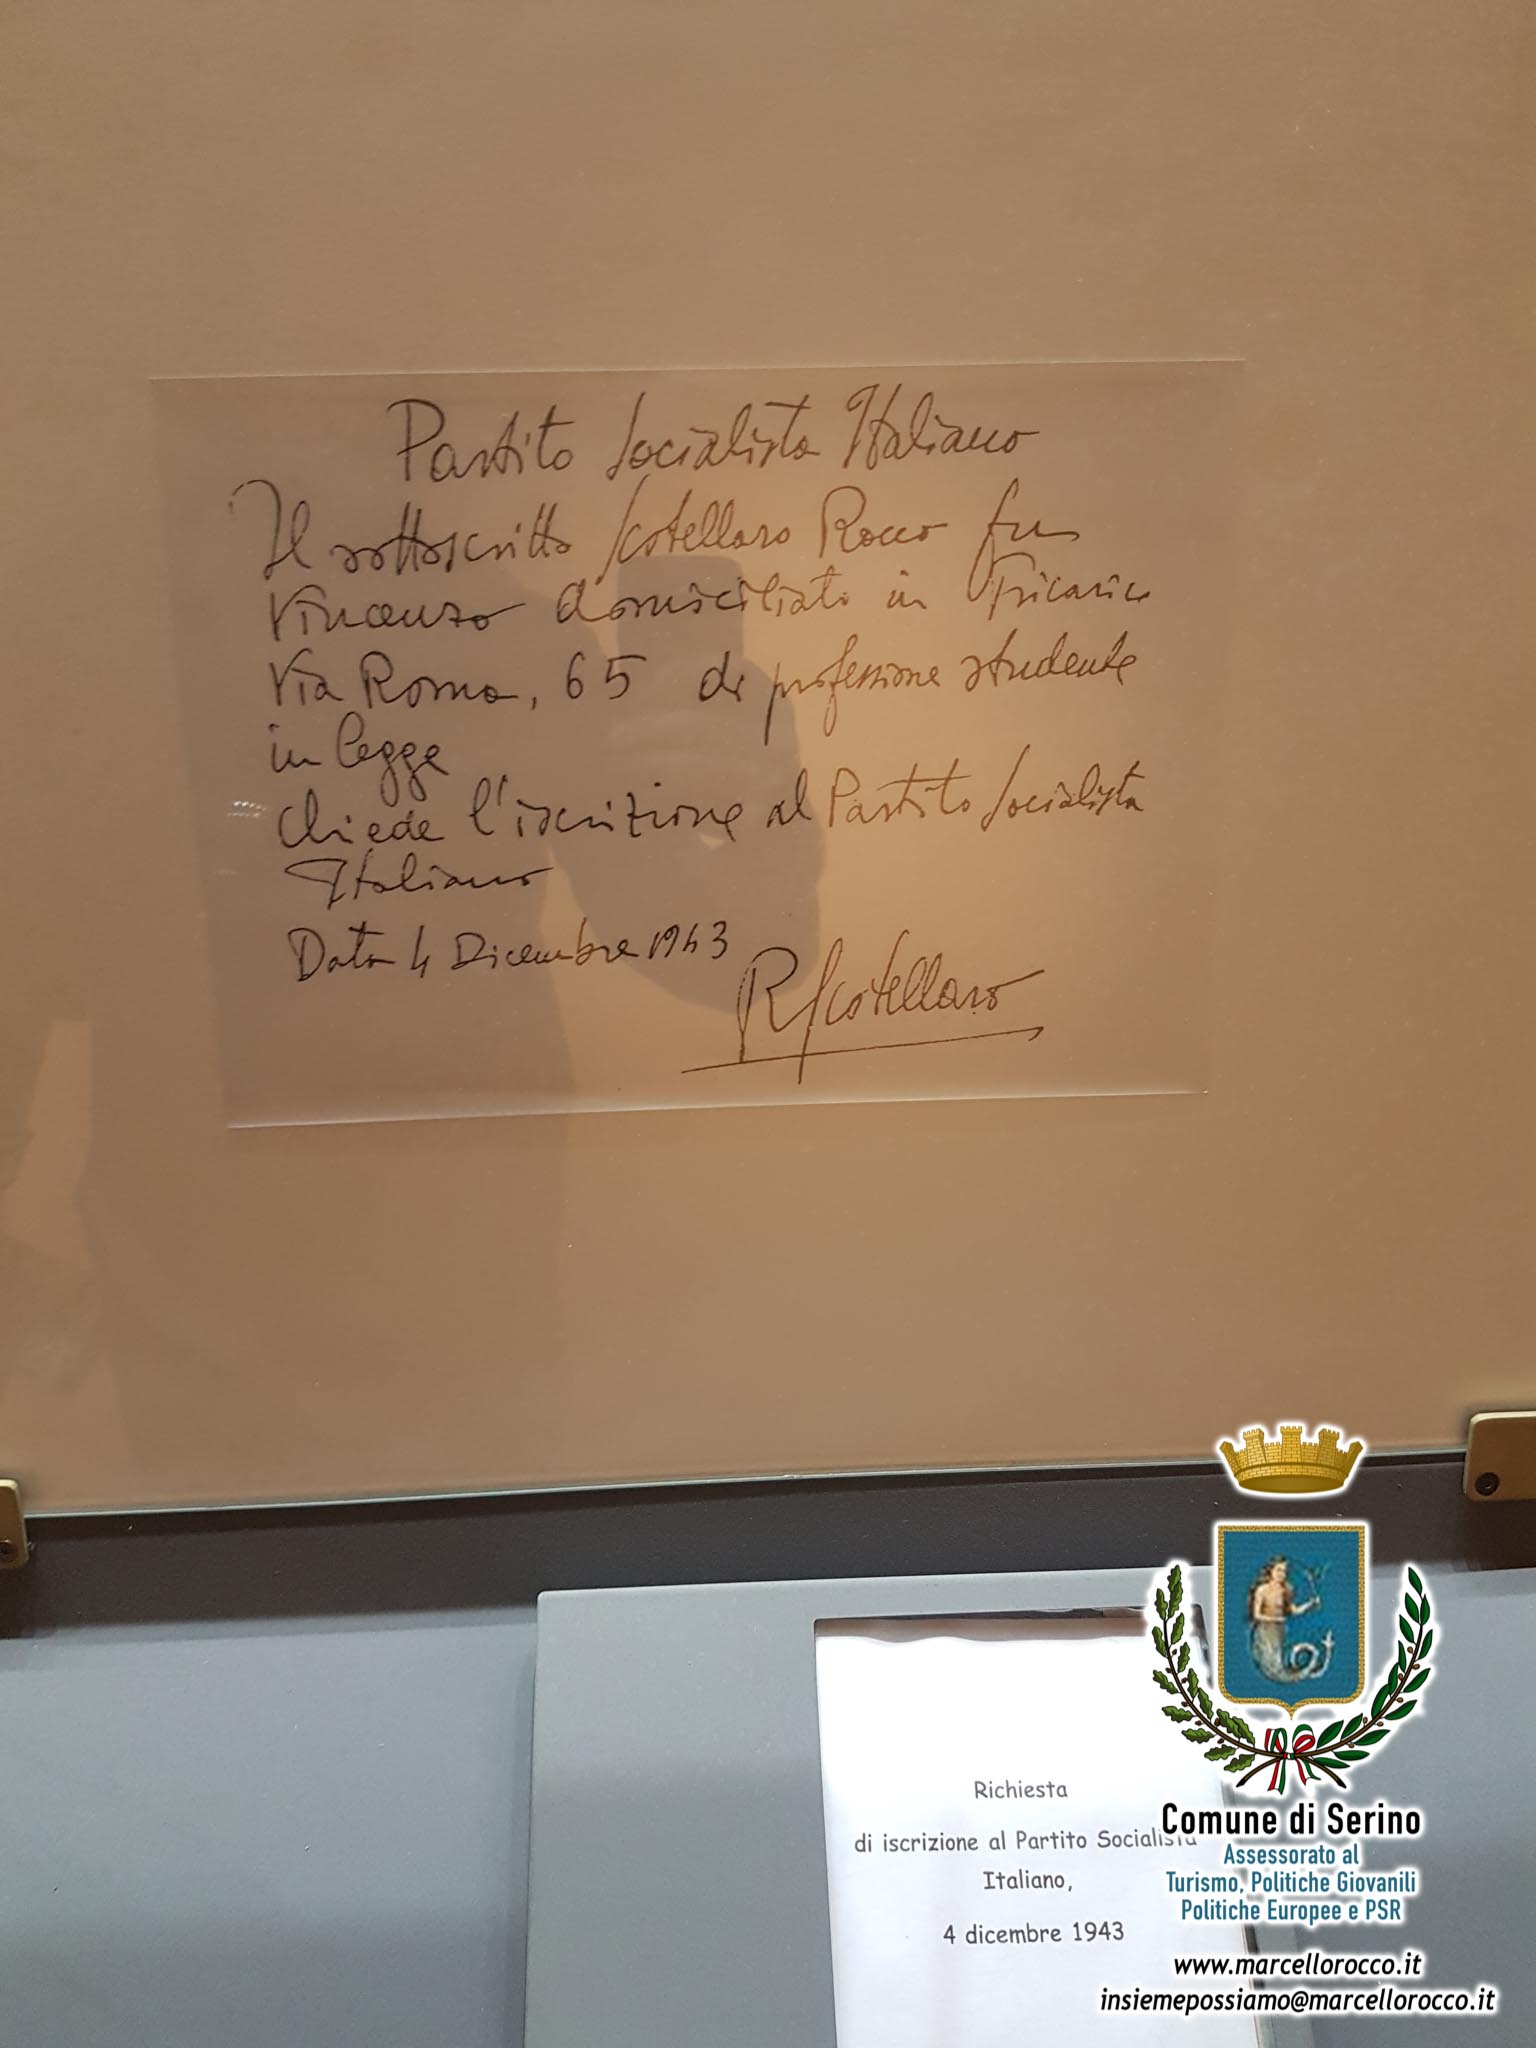 Partito Socialista Italiano
Il sottoscritto Scotellaro Rocco fu
Vincenzo domiciliato in Tricarico
Via Roma, 65 di professione studente
in legge
chiede l'iscrizione al Partito Socialista
Italiano
Data 4 Dicembre 1943
RScotellaro
Richiesta
di iscrizione al Partito Socialista
Italiano,
4 dicembre 1943
Comune di Serino
Assessorato al
Turismo, Politiche Giovanili
Politiche Europee e PSR
www.marcellorocco.it
insiemepossiamo@marcellorocco.it